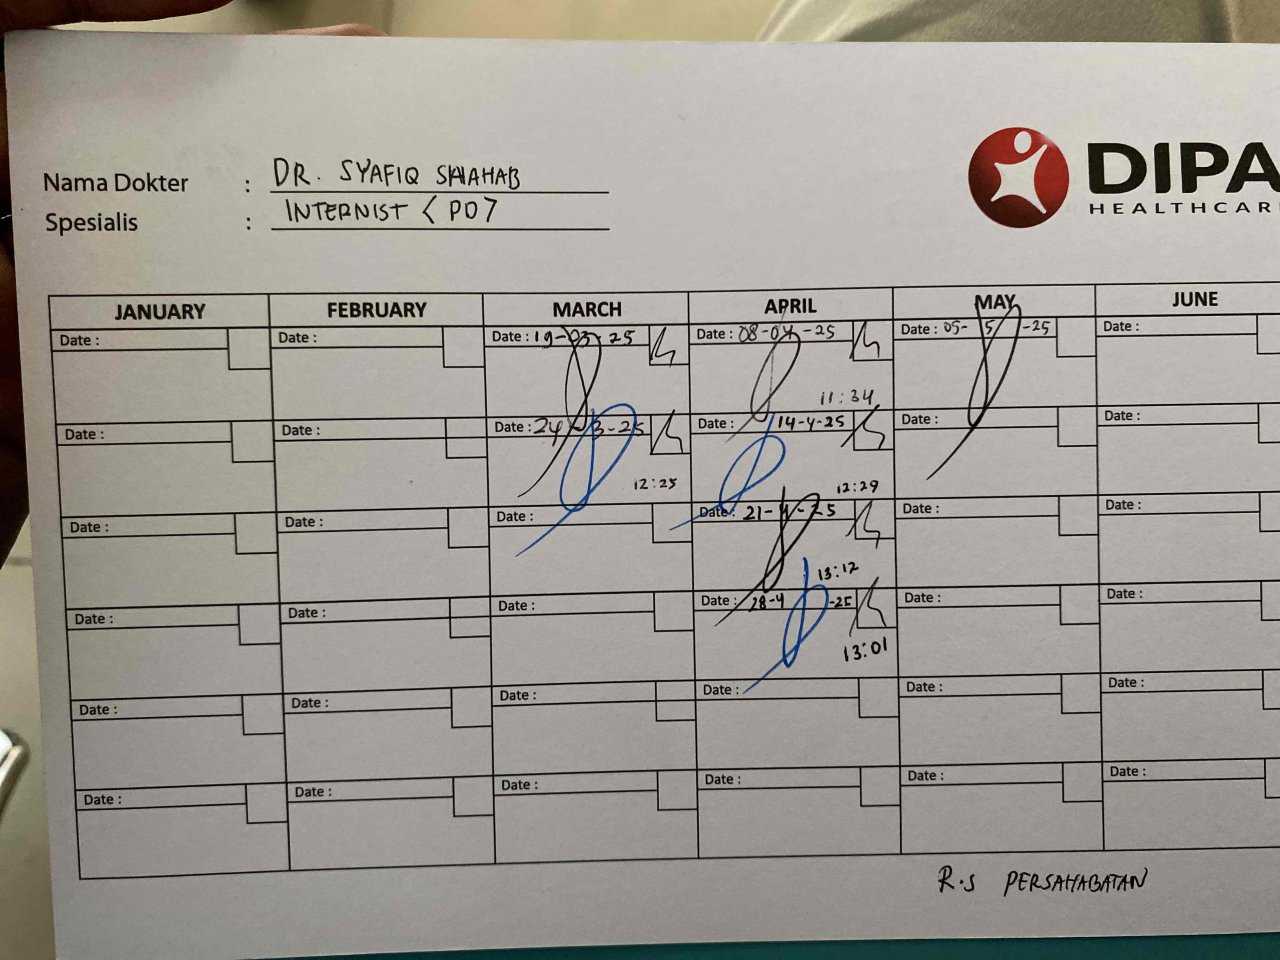 Nama Dokter : DR. SYAFIQ SHAHAB
Spesialis : INTERNIST < PD >
DIPA
HEALTHCAR
JANUARY FEBRUARY MARCH APRIL MAY JUNE
Date : Date : Date : 19-03-25 Date : 08-04-25 Date : 05-5-25 Date :
11:34
Date : Date : Date : 24-3-25 Date : 14-4-25 Date : Date :
12:25 12:29
Date : Date : Date : Date : 21-4-25 Date : Date :
13:12
Date : Date : Date : Date : 28-4-25 Date : Date :
13:01
Date : Date : Date : Date : Date : Date :
Date : Date : Date : Date : Date : Date :
R.S PERSAHABATAN